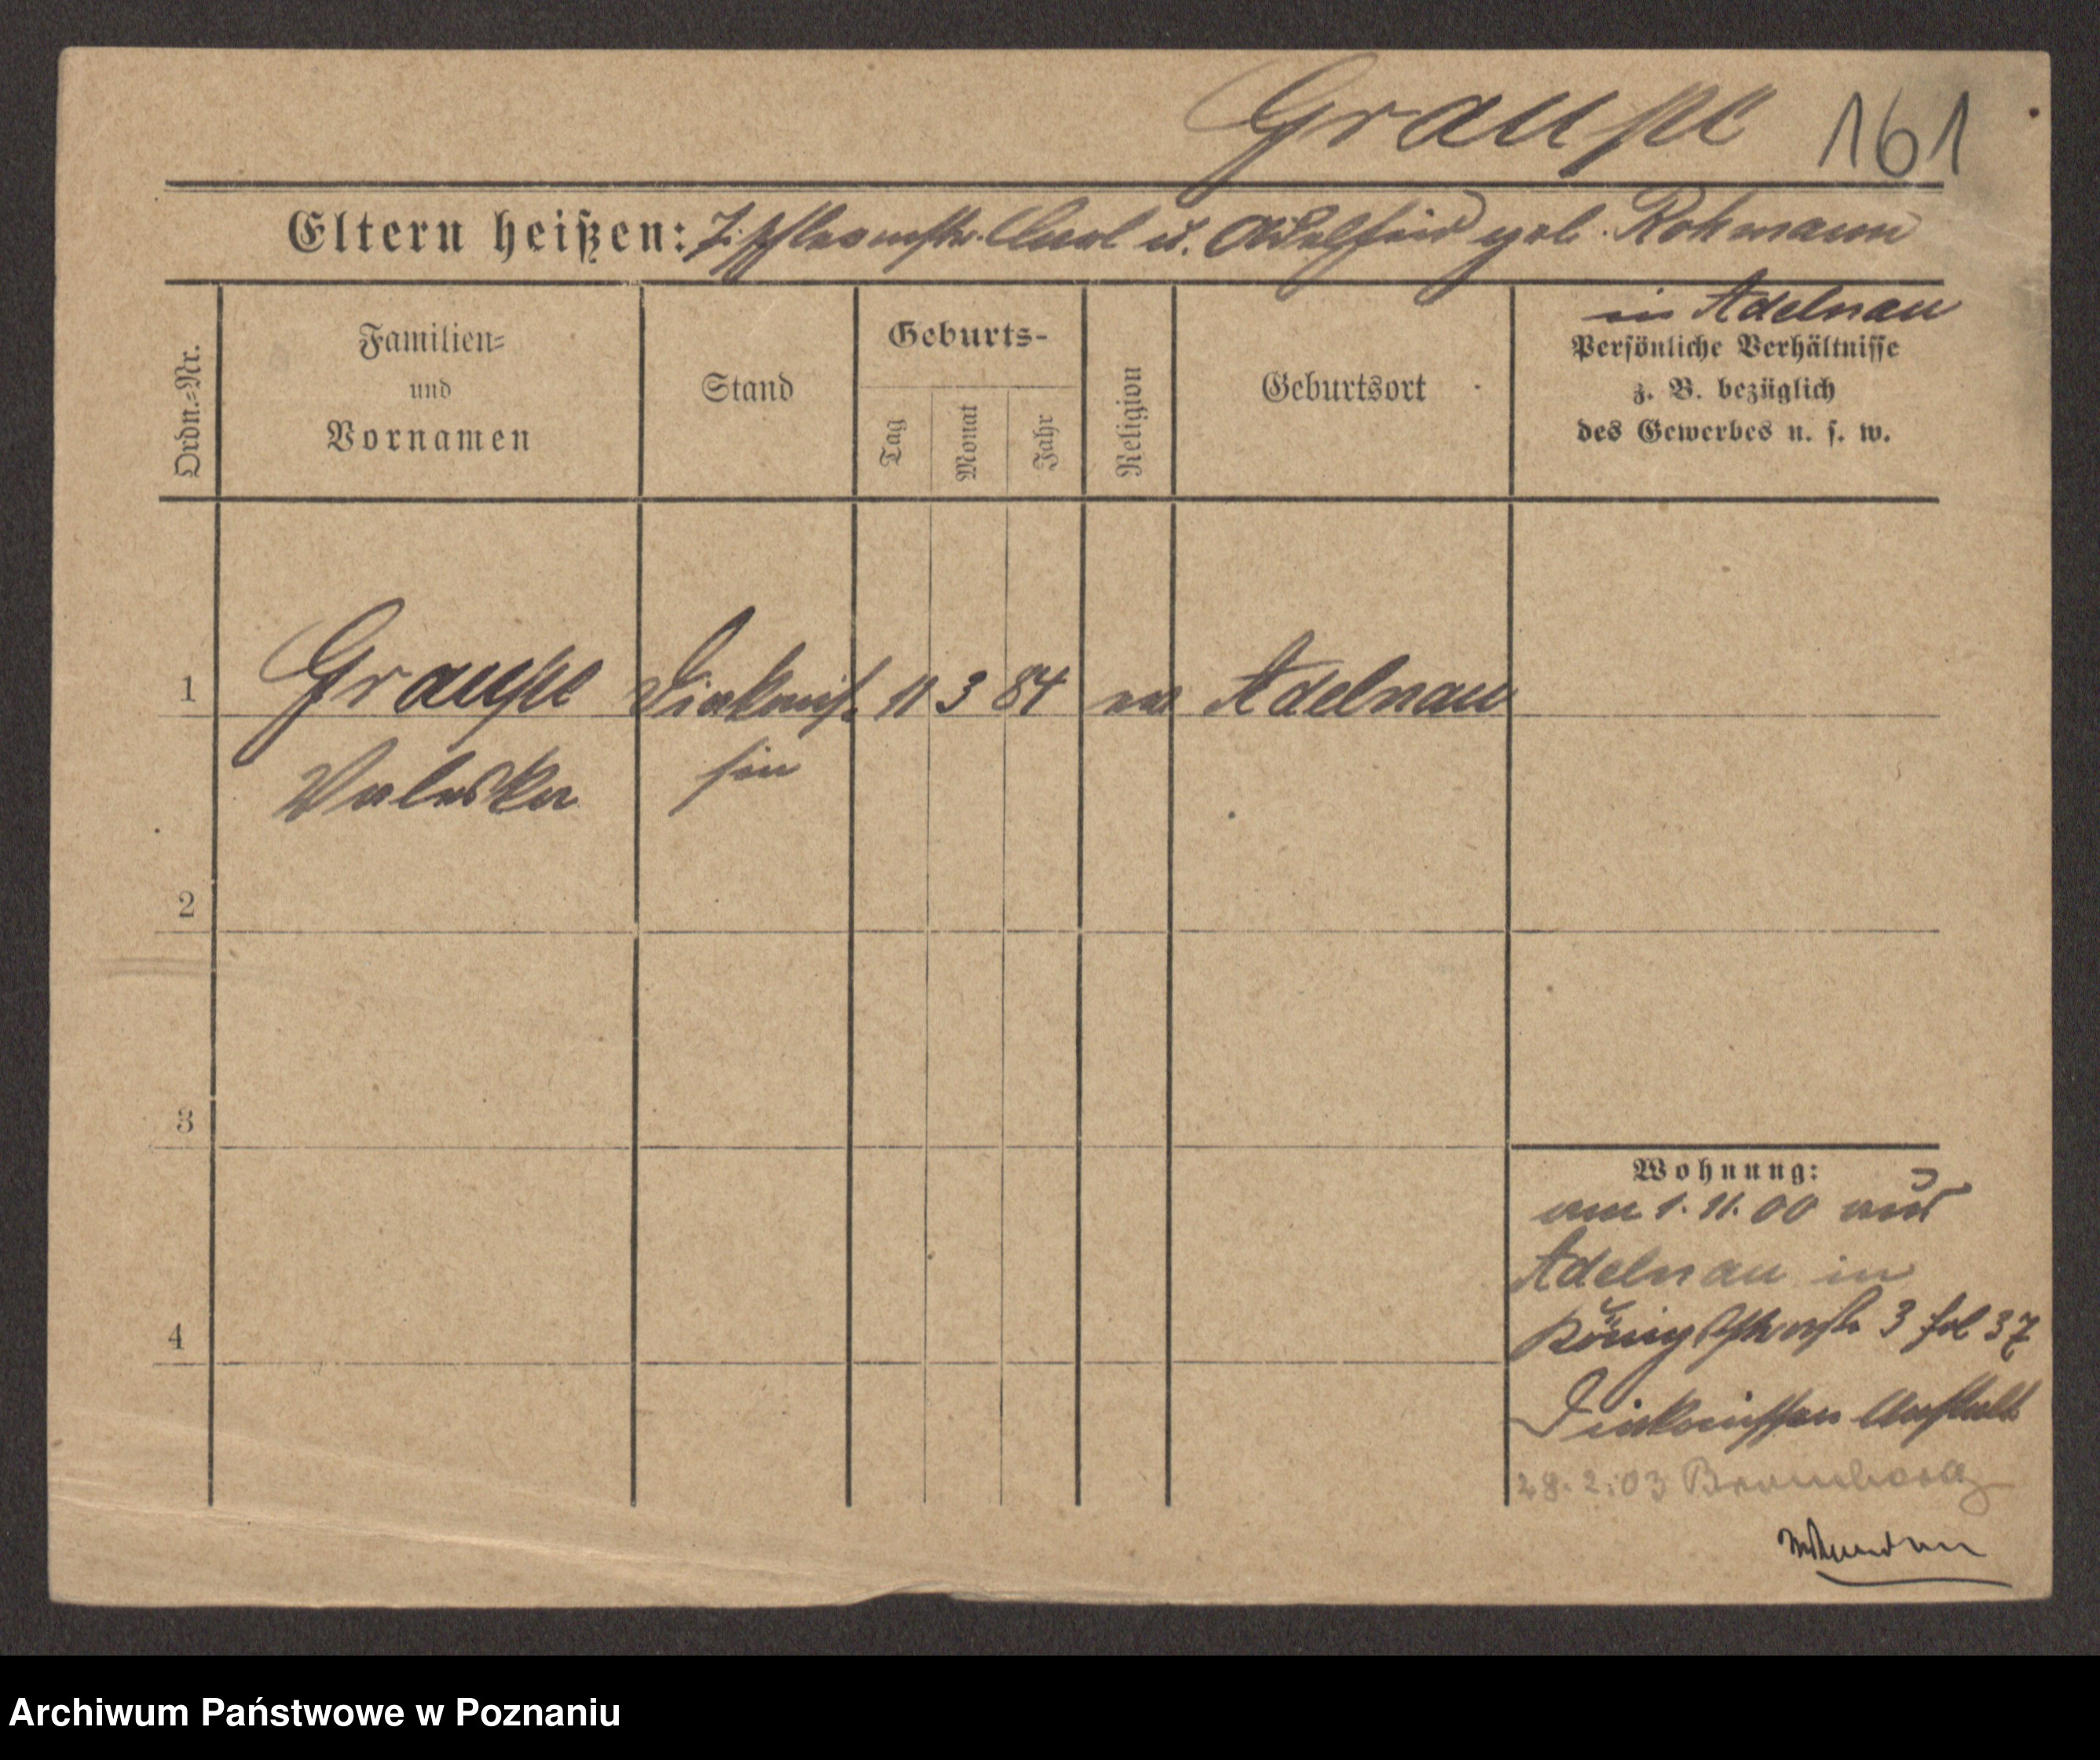 Graupe 161
Eltern heißen: Tischlermstr. Carl u. Adelheid geb. Rohmann
in Adelnau
Ordn.-Nr. Familien- und Vornamen Stand Geburts- Tag Monat Jahr Religion Geburtsort Persönliche Verhältnisse z. B. bezüglich des Gewerbes u. s. w.
1 Graupe Diakonis- 11 3 84 ev Adelnau
Valeska sin
2
3
Wohnung:
am 1. 11. 00 aus
Adelnau in
4 Königsthorstr 3 fol 37
Diakonissen Anstalt
28.2.03 Bromberg